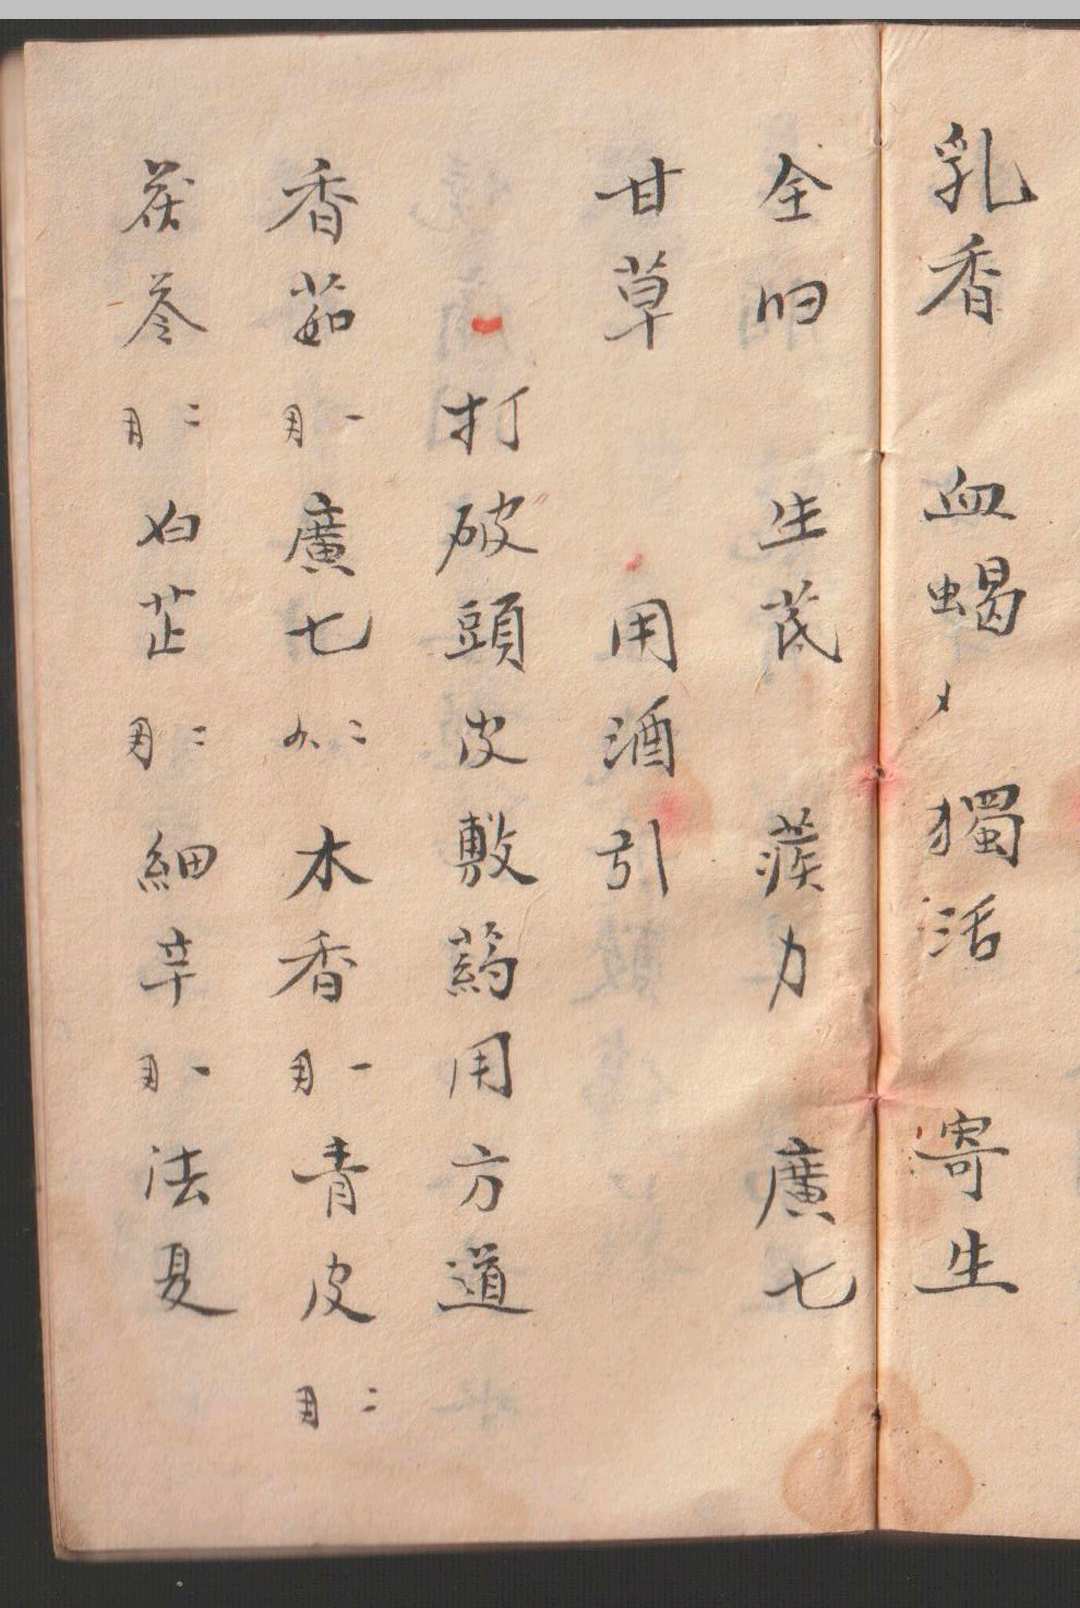 乳香 血蝎 獨活 寄生
全归 生芪 蒺力 廣七
甘草 用酒引
打破頭皮敷药用方道
香茹 一 廣七 二 木香 一 青皮 二
茯苓 二 白芷 二 細辛 一 法夏